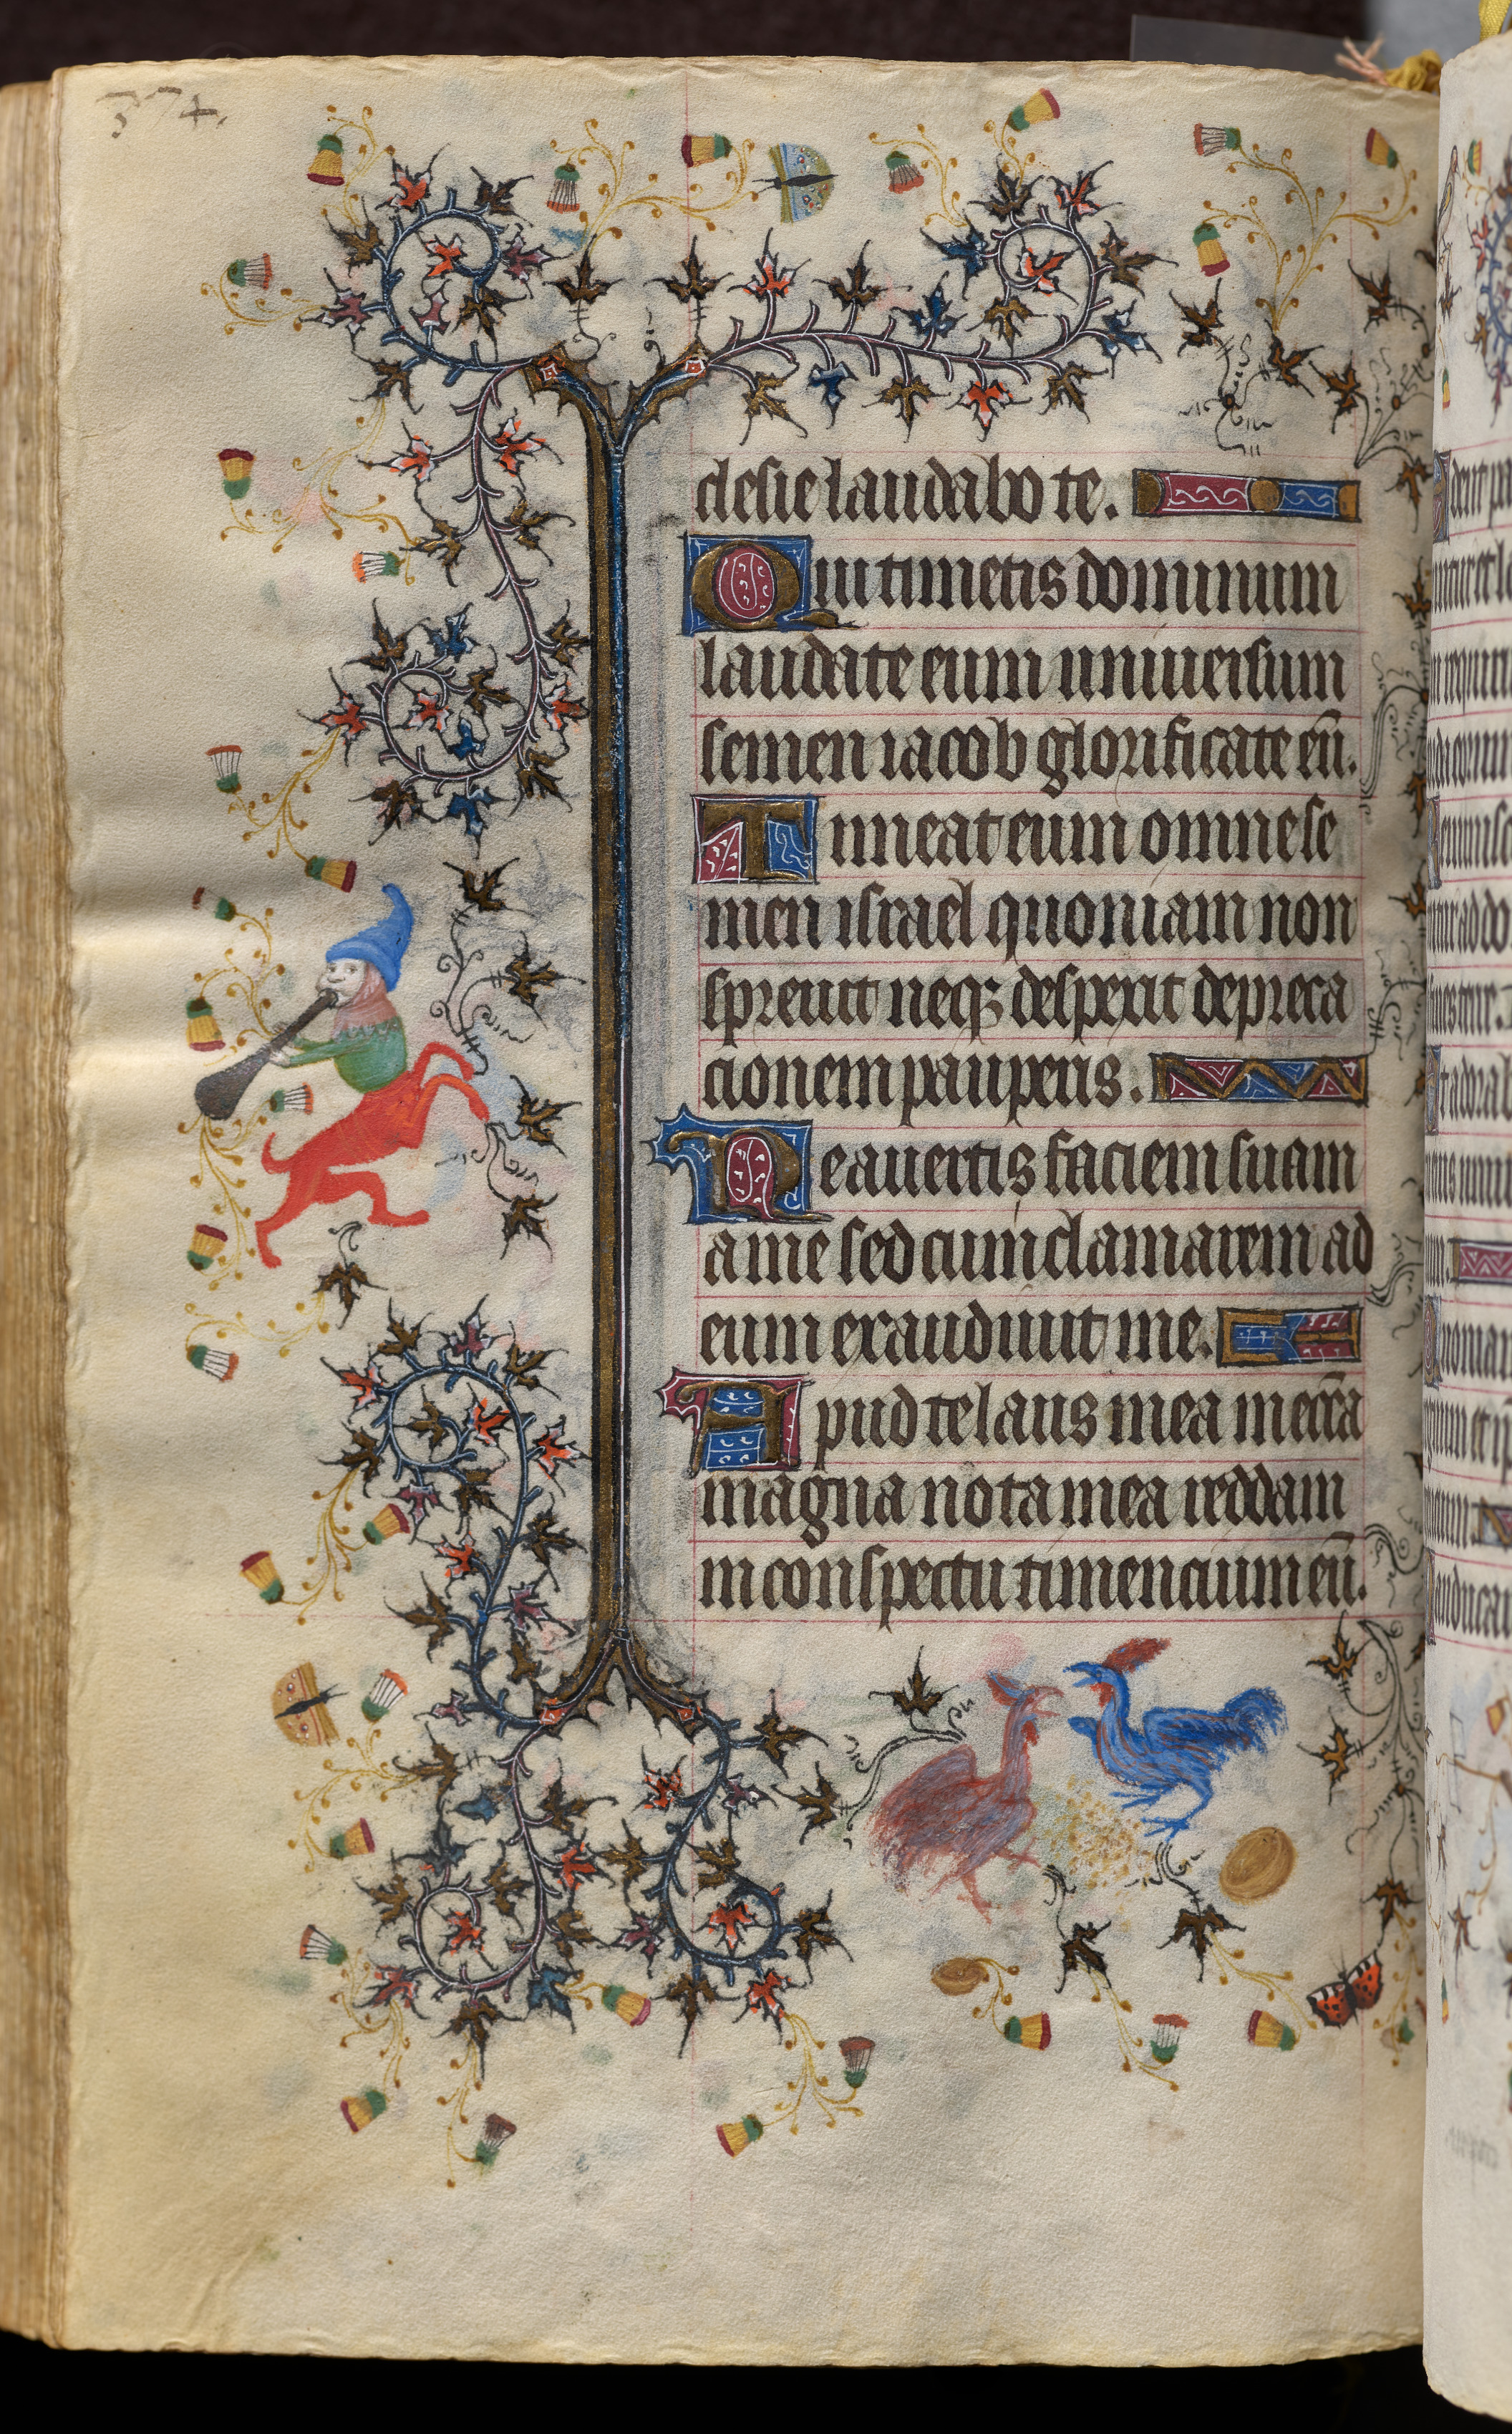 374.
clesie laudabo te.
Qui timetis dominum
laudate eum uniuersum
semen iacob glorificate eū.
Timeat eum omne se
men israel quoniam non
spreuit neqꝫ despexit depreca
cionem pauperis.
Ne auertis faciem suam
a me sed cum clamarem ad
eum exaudiuit me.
Apud te laus mea in eccl̄ia
magna uota mea reddam
in conspectu timencium eū.